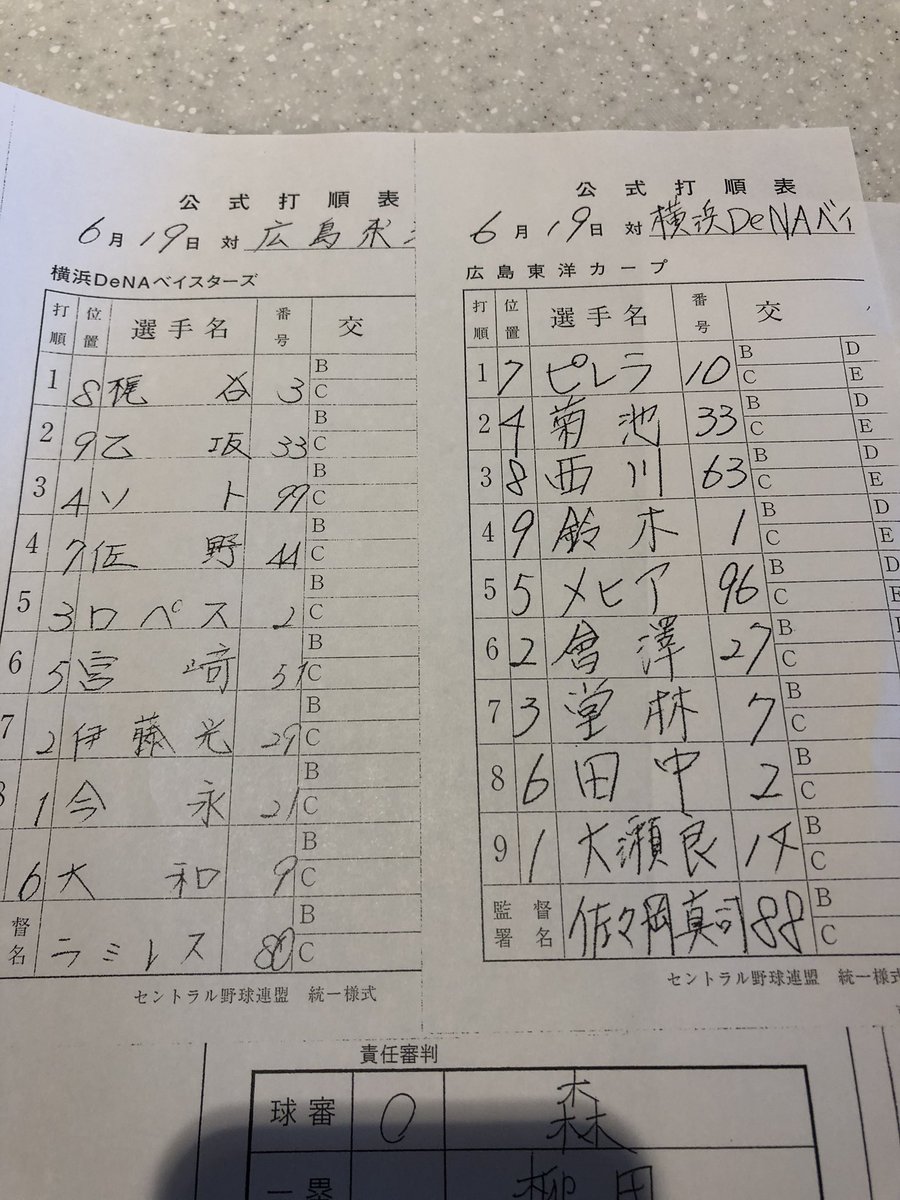 公式打順表
6月19日 対 広島東
横浜DeNAベイスターズ
打順 位置 選手名 番号 交
1 8 梶谷 3 B C
2 9 乙坂 33 B C
3 4 ソト 99 B C
4 7 佐野 44 B C
5 3 ロペス 2 B C
6 5 宮﨑 51 B C
7 2 伊藤光 29 B C
8 1 今永 21 B C
6 大和 9 B C
督名 ラミレス 80 B C
セントラル野球連盟 統一様式
公式打順表
6月19日 対 横浜DeNAベイ
広島東洋カープ
打順 位置 選手名 番号 交
1 7 ピレラ 10 B C D E
2 4 菊池 33 B C D E
3 8 西川 63 B C D E
4 9 鈴木 1 B C D E
5 5 メヒア 96 B C D E
6 2 會澤 27 B C
7 3 堂林 7 B C
8 6 田中 2 B C
9 1 大瀬良 14 B C
監督署名 佐々岡真司 88 B C
セントラル野球連盟 統一様式
責任審判
球審 0 森
一塁 柳田